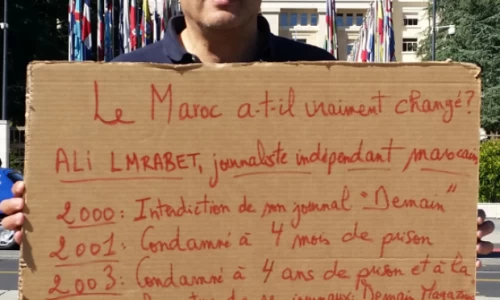 Le Maroc a-t-il vraiment changé?
ALi LMRABET, journaliste indépendant marocain
2000: Interdiction de mon journal "Demain"
2001: Condamné à 4 mois de prison
2003: Condamné à 4 ans de prison et à la
de journaux: Demain Magazine